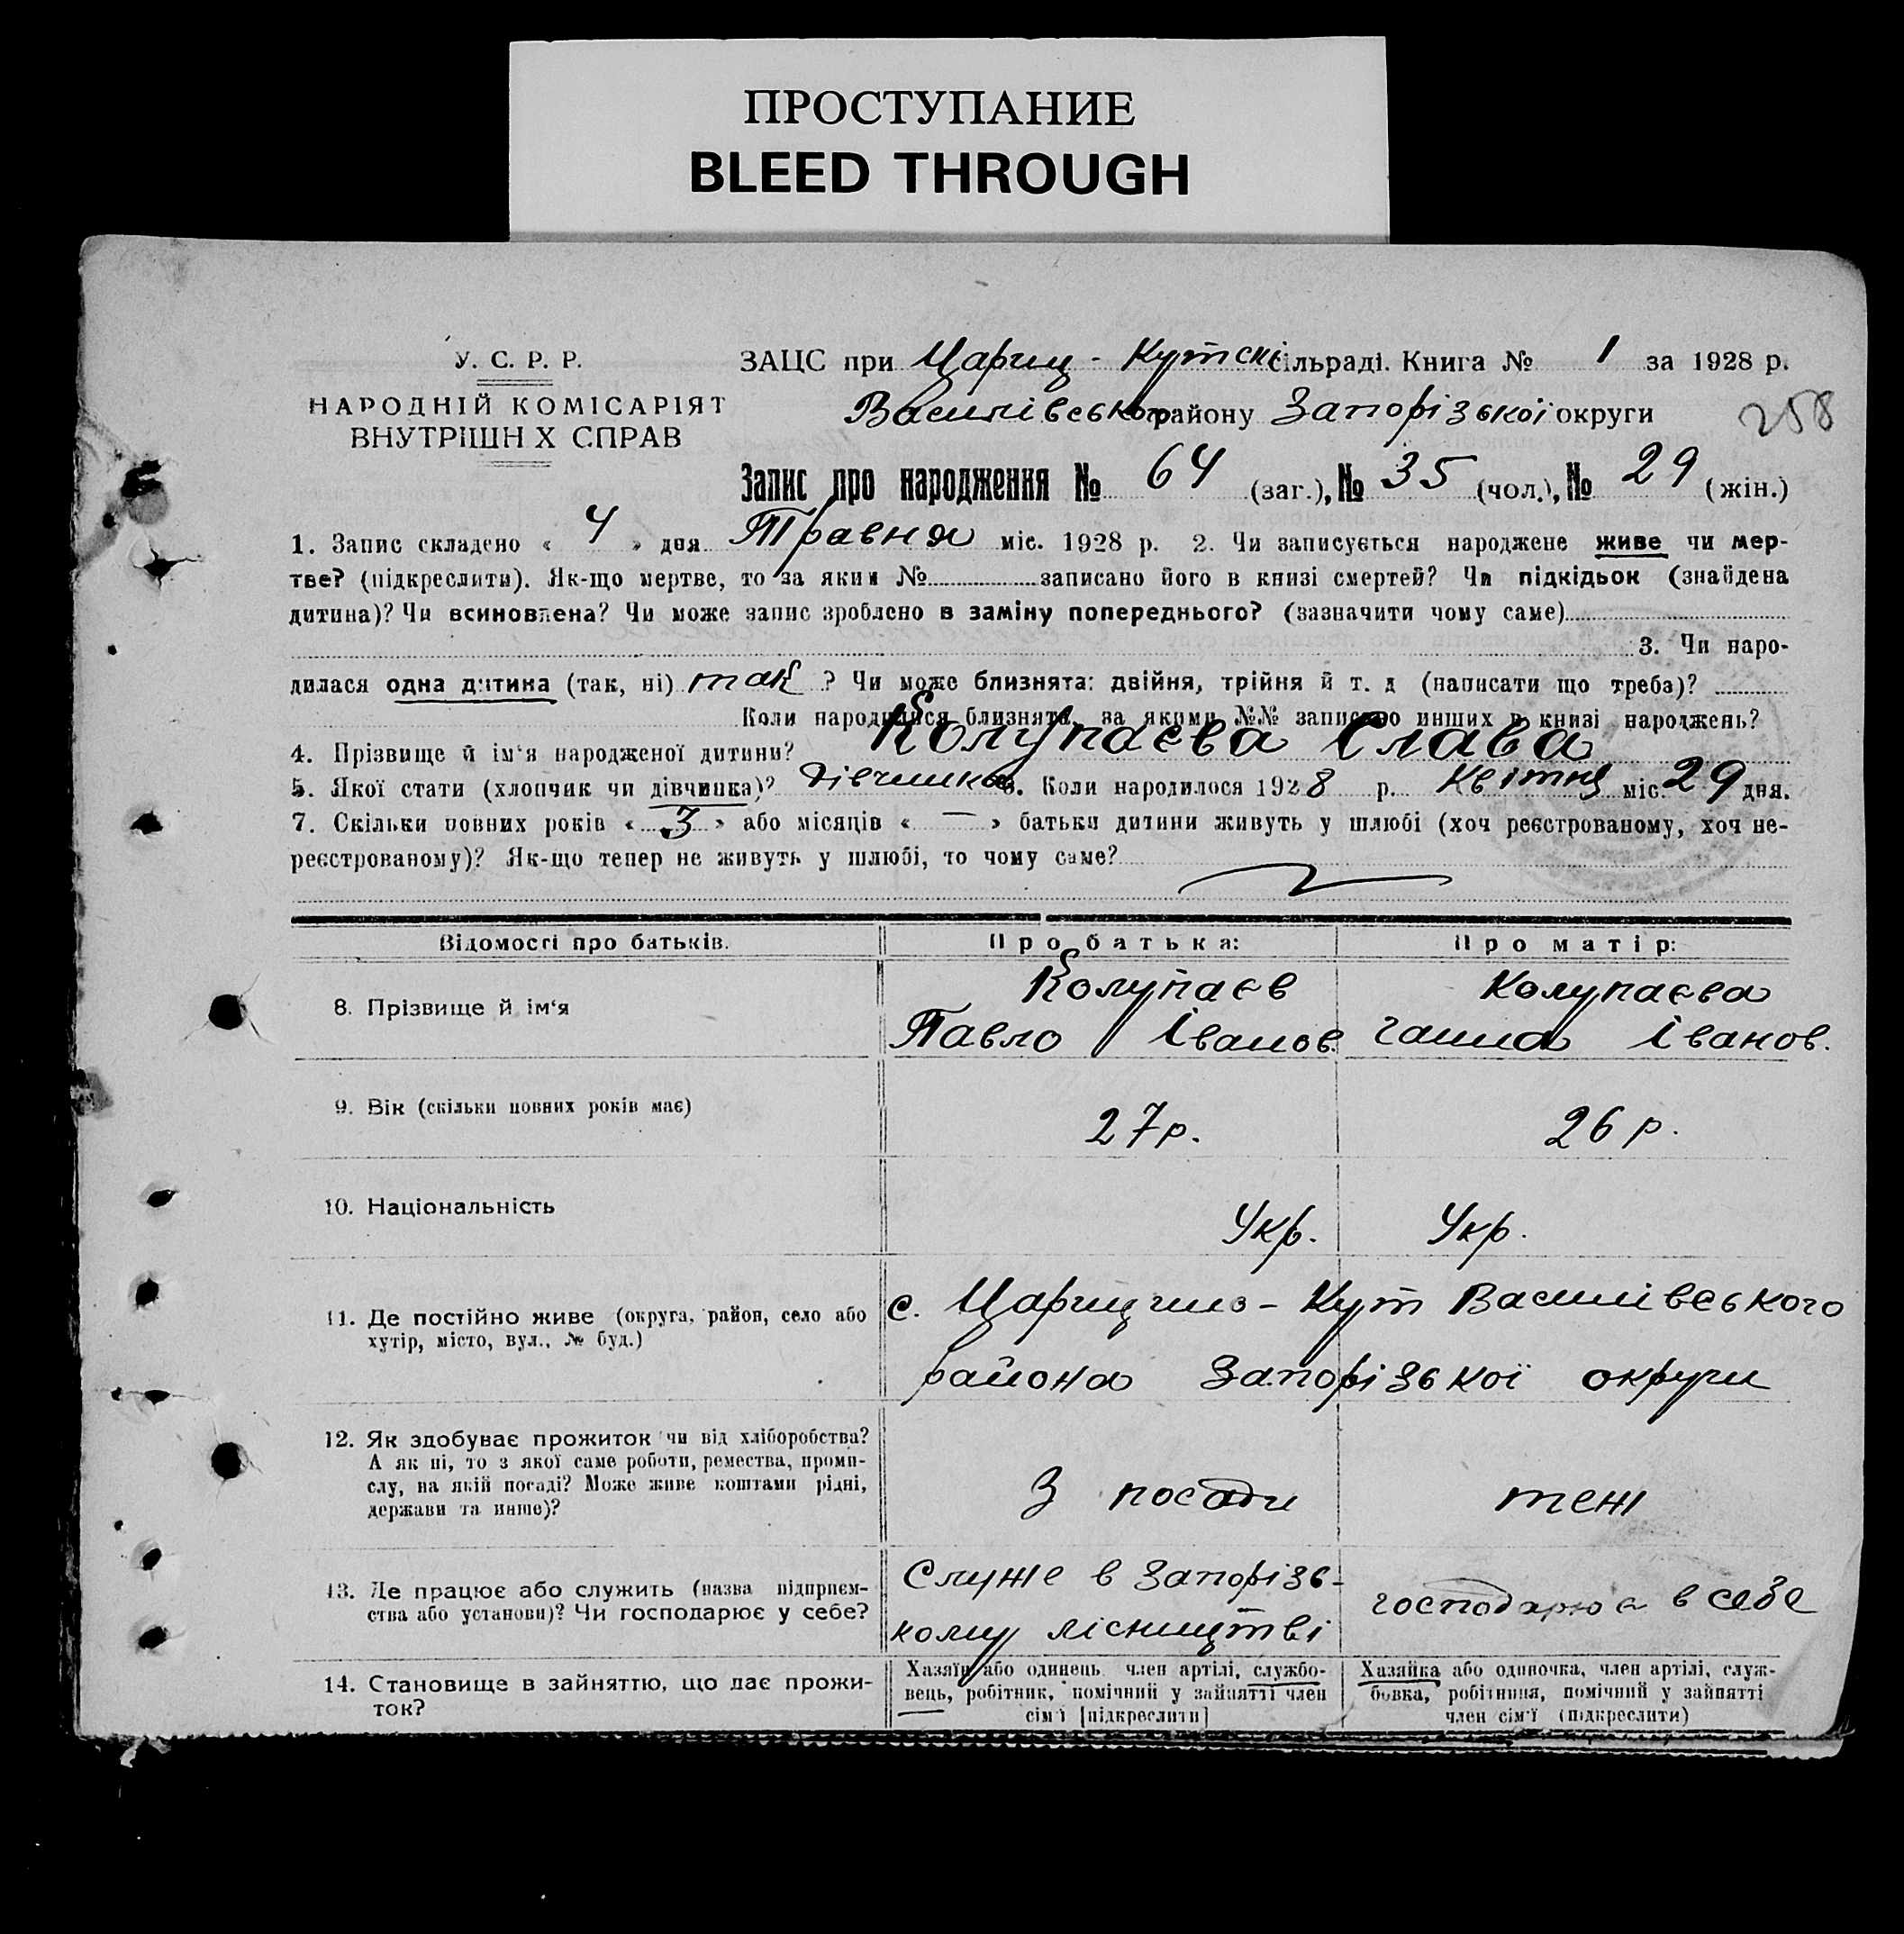 ПРОСТУПАНИЕ
BLEED THROUGH
У. С. Р. Р.
НАРОДНІЙ КОМІСАРІЯТ
ВНУТРІШН Х СПРАВ
ЗАЦС при Цариц - Кутскі сільраді. Книга № 1 за 1928 р.
Василівського району Запорізької округи
258
Запис про народження № 64 (заг.), № 35 (чол.), № 29 (жін.)
1. Запис складено « 4 » дня Травня міс. 1928 р. 2. Чи записується народжене живе чи мер-
тве? (підкреслити). Як-що мертве, то за яким № записано його в книзі смертей? Чи підкідьок (знайдена
дитина)? Чи всиновлена? Чи може запис зроблено в заміну попереднього? (зазначити чому саме)
3. Чи наро-
дилася одна дитина (так, ні) так ? Чи може близнята: двійня, трійня й т. д (написати що треба)?
Коли народилися близнята, за якими №№ записано инших в книзі народжень?
4. Прізвище й ім‘я народженої дитини? Колупаєва Слава
5. Якої стати (хлопчик чи дівчинка)? Дівчинка 6. Коли народилося 1928 р. Квітня міс. 29 дня.
7. Скільки повних років « 3 » або місяців « — » батьки дитини живуть у шлюбі (хоч реєстрованому, хоч не-
реєстрованому)? Як-що тепер не живуть у шлюбі, то чому саме?
Відомості про батьків.
Про батька:
Про матір:
8. Прізвище й ім‘я
Колупаєв
Павло Іванов.
Колупаєва
Ганна Іванов.
9. Вік (скільки повних років має)
27 р.
26 р.
10. Національність
Укр.
Укр.
11. Де постійно живе (округа, район, село або
хутір, місто, вул., № буд.)
с. Царицино - Кут Василівського
района Запорізької округи
12. Як здобуває прожиток чи від хліборобства?
А як ні, то з якої саме роботи, ремества, проми-
слу, на якій посаді? Може живе коштами рідні,
держави та инше)?
З посади
теж
13. Де працює або служить (назва підприєм-
ства або установи)? Чи господарює у себе?
Служе в Запорізь-
кому лісництві
господарює в себе
14. Становище в зайняттю, що дає прожи-
ток?
Хазяїн або одинець член артілі, службо-
вець, робітник, помічний у зайнятті член
сім‘ї [підкреслити]
Хазяйка або одиночка, член артілі, служ-
бовка, робітниця, помічний у зайнятті
член сім‘ї (підкреслити)